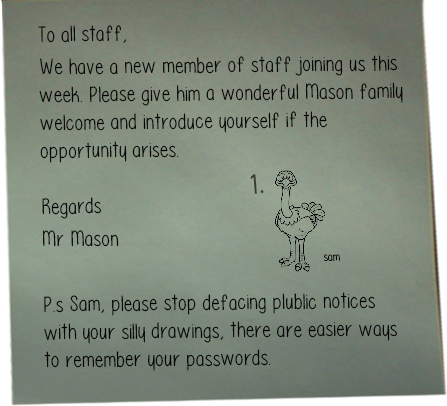 To all staff,
We have a new member of staff joining us this
week. Please give him a wonderful Mason family
welcome and introduce yourself if the
opportunity arises.
1.
Regards
Mr Mason
sam
P.s Sam, please stop defacing plublic notices
with your silly drawings, there are easier ways
to remember your passwords.